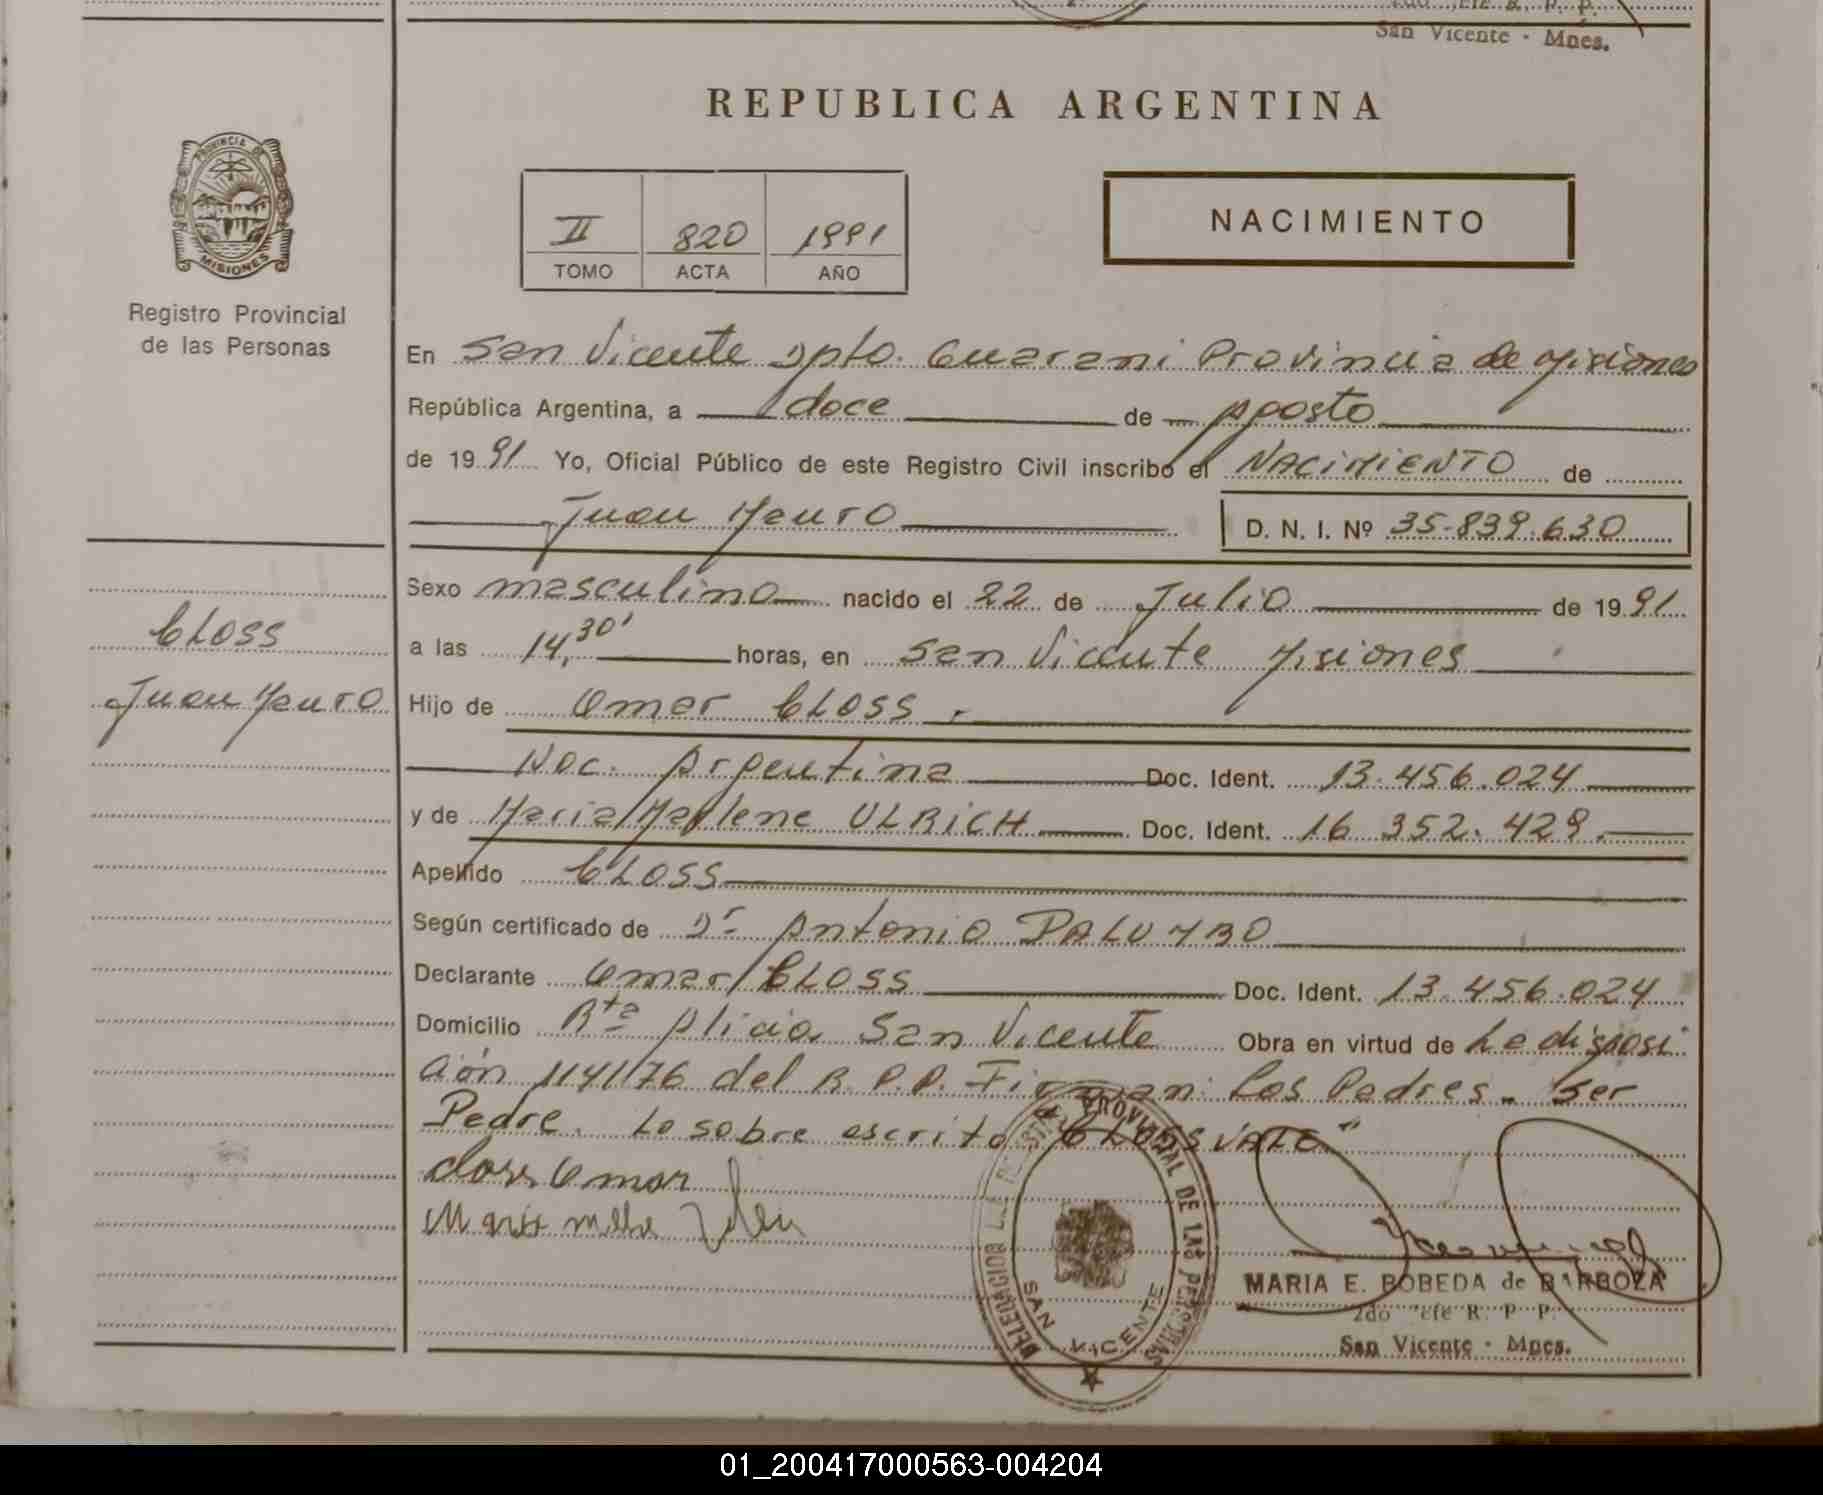 2do Jefe R. P. P.
San Vicente - Mnes.
REPUBLICA ARGENTINA
PROVINCIA DE
MISIONES
Registro Provincial
de las Personas
II 820 1991
TOMO ACTA AÑO
NACIMIENTO
En San Vicente Dpto. Guarani Provincia de Misiones
República Argentina, a doce de Agosto
de 1991 Yo, Oficial Público de este Registro Civil inscribo el NACIMIENTO de
Juan Mauro D. N. I. Nº 35-839.630
Sexo masculino nacido el 22 de Julio de 1991
CLOSS
Juan Mauro
a las 14,30' horas, en San Vicente Misiones
Hijo de Omar CLOSS.
Nac. Argentina Doc. Ident. 13.456.024
y de Maria Marlene ULRICH Doc. Ident. 16 352.429.
Apellido CLOSS
Según certificado de Dr Antonio PALUMBO
Declarante Omar CLOSS Doc. Ident. 13.456.024
Domicilio Rta Alicia San Vicente Obra en virtud de La disposi
ción 1141/76 del R.P.P. Firman: Los Padres. Ser
Padre. Lo sobre escrito "CLOSS VALE"
Closs Omar
Maria
DELEGACION PROVINCIAL DE LAS PERSONAS
SAN VICENTE
MARIA E. BOBEDA de BARBOZA
2do Jefe R. P. P.
San Vicente - Mnes.
01_200417000563-004204